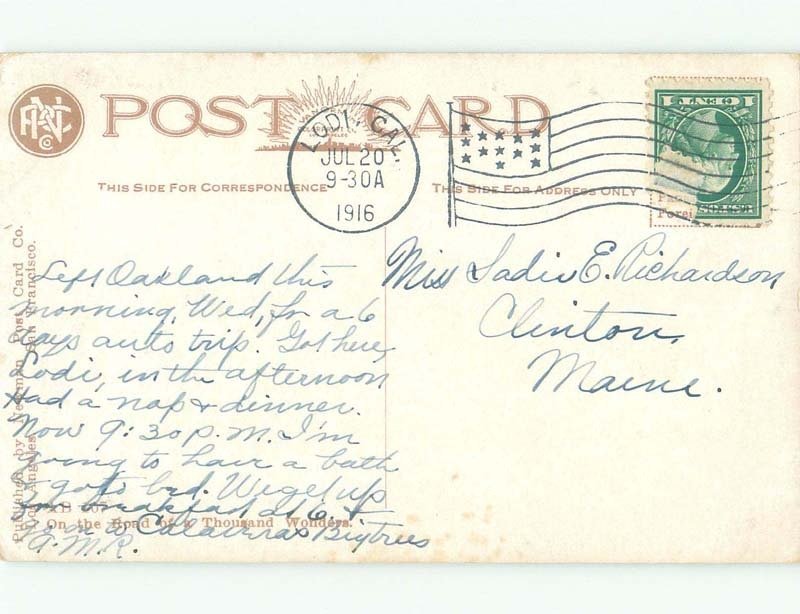 POST CARD
LODI, CAL.
JUL 20
9-30A
1916
1 CENT 1
THIS SIDE FOR CORRESPONDENCE
THIS SIDE FOR ADDRESS ONLY
Left Oakland this
morning, Wed, for a 6
days auto trip. Got here,
Lodi, in the afternoon
Had a nap & dinner.
Now 9:30 p.m. I'm
going to have a bath
& go to bed. We get up
for breakfast at 6 &
go on to Calaveras Bigtrees
A.M.R.
Miss Sadie E. Richardson
Clinton,
Maine.
Published by Newman Post Card Co.
Los Angeles San Francisco.
On the Road of a Thousand Wonders.